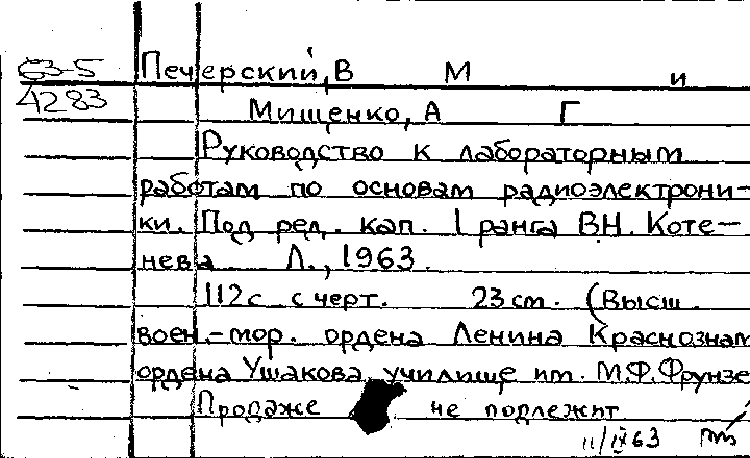 63-5 Печерский, В М и
4283 Мищенко, А Г
Руководство к лабораторным
работам по основам радиоэлектрони-
ки. Под ред. кап. 1 ранга В.Н. Коте-
нева Л., 1963.
112 с. с черт. 23 см. (Высш.
воен.-мор. ордена Ленина Краснознам
ордена Ушакова училище им. М.Ф. Фрунзе
Продаже не подлежит
11/IX 63